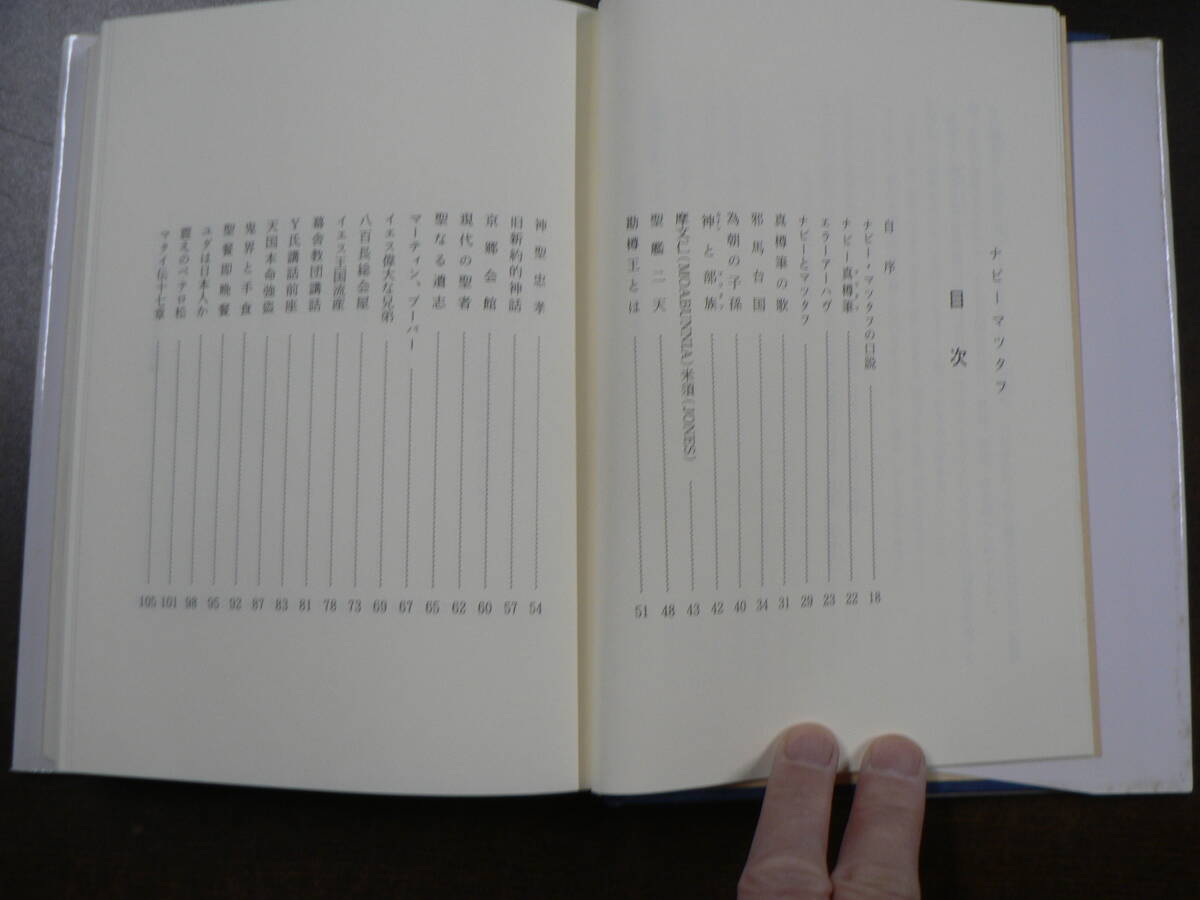 ナビーマツタフ
目次
自序
ナビー・マツタフの口説 18
ナビー真樽筆 22
エラーアーハヴ 23
ナビーとマツタフ 29
真樽筆の歌 31
邪馬台国 34
為朝の子孫 40
神と部族 42
(MOABUNNIA)米須(JONES) 43
聖艦二天 48
勘樽王とは 51
神聖忠孝 54
旧新約的神話 57
京郷会館 60
現代の聖者 62
聖なる遺志 65
マーティン、ブーバー 67
イエス偉大な兄弟 69
八百長総会屋 73
イエス王国流産 78
幕舎教団講話 81
Y氏講話前座 83
天国本命強盗 87
鬼界と手食 92
聖餐即晩餐 95
ユダは日本人か 98
震えのペテロ松 101
マタイ伝十七章 105